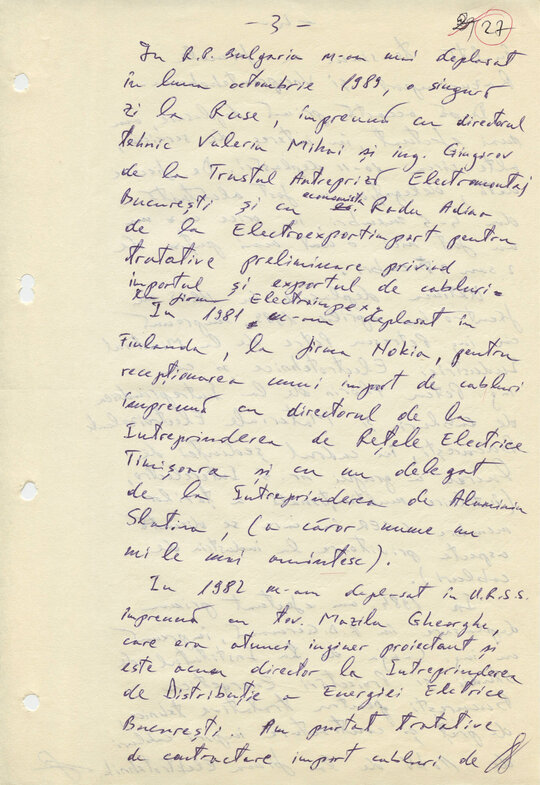 - 3 -
27
In R.P. Bulgaria m-am mai deplasat
în luna octombrie 1989, o singură
zi la Ruse, împreună cu directorul
tehnic Valeriu Mihai și ing. Giugorov
de la Trustul Antrepriză Electromontaj
București și cu economista Radu Adina
de la Electroexportimport pentru
tratative preliminare privind
importul și exportul de cabluri.
la firma Electroimpex.
In 1981 m-am deplasat în
Finlanda, la firma Nokia, pentru
recepționarea unui import de cabluri
împreună cu directorul de la
Intreprinderea de Rețele Electrice
Timișoara și cu un delegat
de la Intreprinderea de Aluminiu
Slatina, (a căror nume nu
mi le mai amintesc).
In 1982 m-am deplasat în U.R.S.S.
împreună cu tov. Mazilu Gheorghe,
care era atunci inginer proiectant și
este acum director la Intreprinderea
de Distribuție a Energiei Electrice
București. Am purtat tratative
de contractare import cabluri de